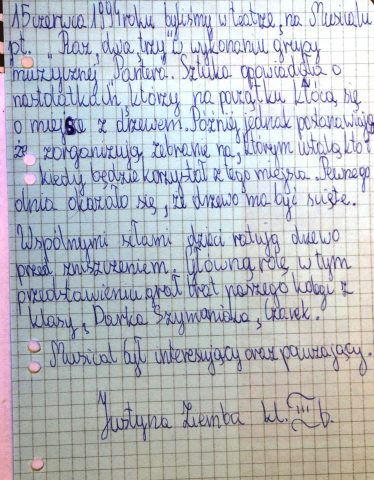 15 czerwca 1994 roku byliśmy w teatrze, na Musicalu
pt. "Raz, dwa, trzy" w wykonaniu grupy
muzycznej "Pantera". Sztuka opowiadała o
nastolatkach, którzy na początku kłócą się
o miejsce z drzewem. Później jednak postanawiają,
że zorganizują zebranie na, którym ustalą kto i
kiedy będzie korzystał z tego miejsca. Pewnego
dnia okazało się, że drzewo ma być ścięte.
Wspólnymi siłami dzieci ratują drzewo
przed zniszczeniem. Główną rolę w tym
przedstawieniu grał brat naszego kolegi z
klasy, Darka Szymaniaka, Czarek.
Musical był interesujący oraz pouczający.
Justyna Ziemba kl. III b.